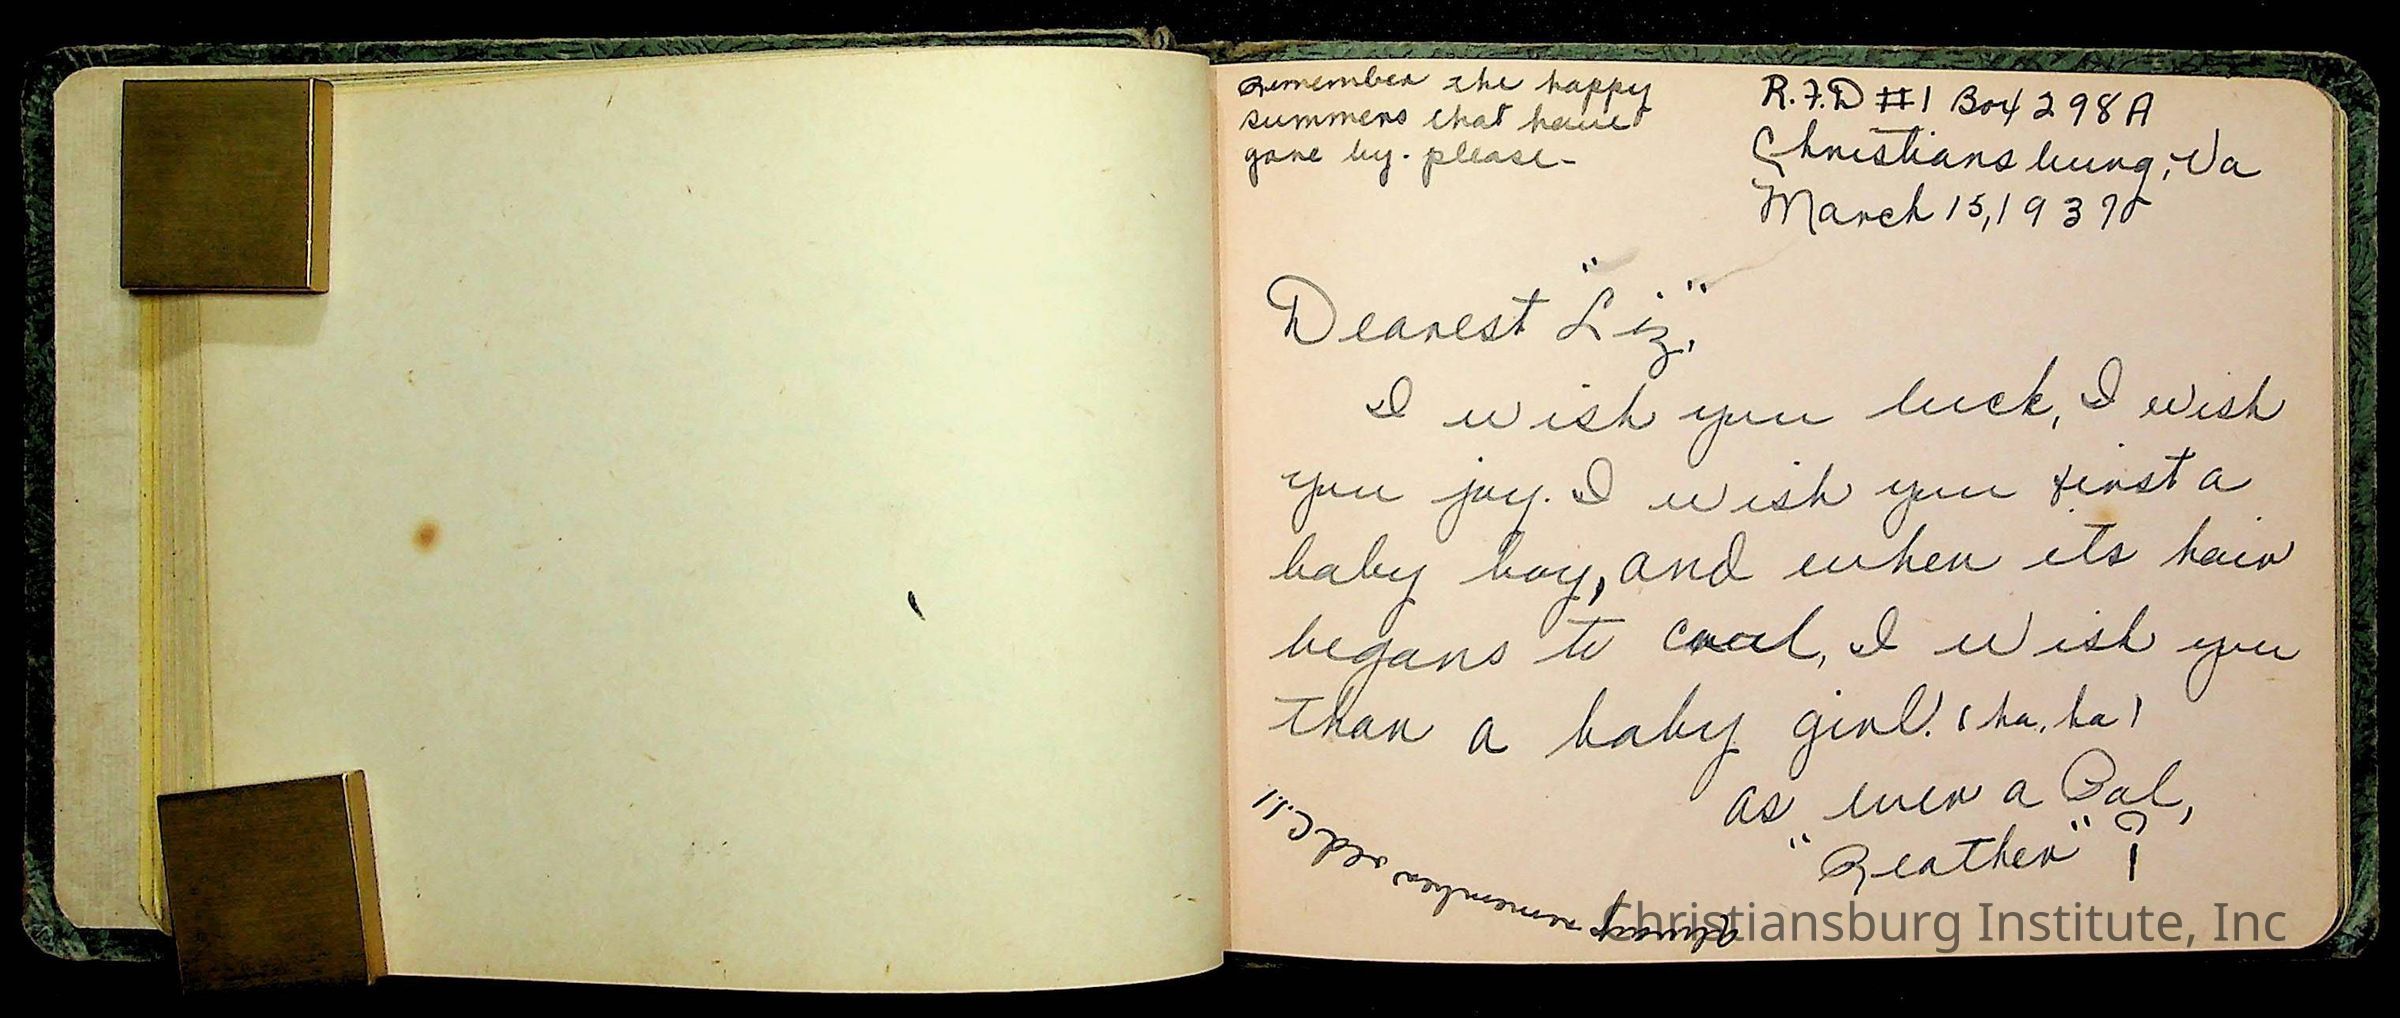 Remember the happy
summers that have
gone by. please-
R.F.D #1 Box 298A
Christiansburg, Va
March 15, 1937
Dearest "Liz",
I wish you luck, I wish
you joy. I wish you first a
baby boy, and when its hair
begans to curl, I wish you
than a baby girl. (ha, ha)
as ever a Pal,
"Reather" ?
Always remember old C.I.
Christiansburg Institute, Inc